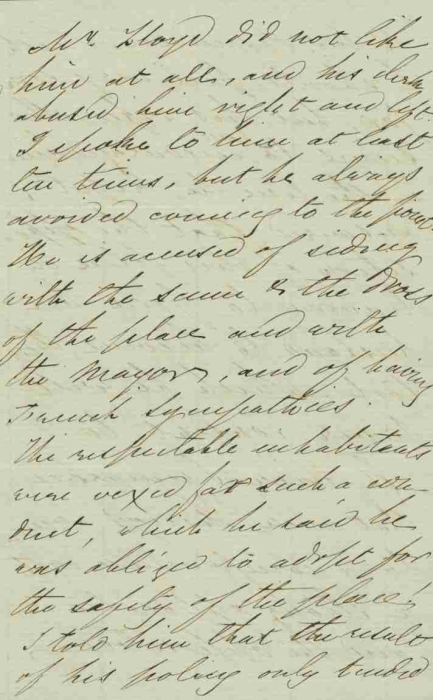 Mr. Lloyd did not like
him at all, and his clerks
abused him right and left
I spoke to him at least
ten times, but he always
avoided coming to the point.
He is accused of siding
with the scum & the dross
of the place and with
the Mayor, and of having
French sympathies.
The respectable inhabitants
were vexed for such a con
duct, which he said he
was obliged to adopt for
the safety of the place!
I told him that the result
of his policy only tended